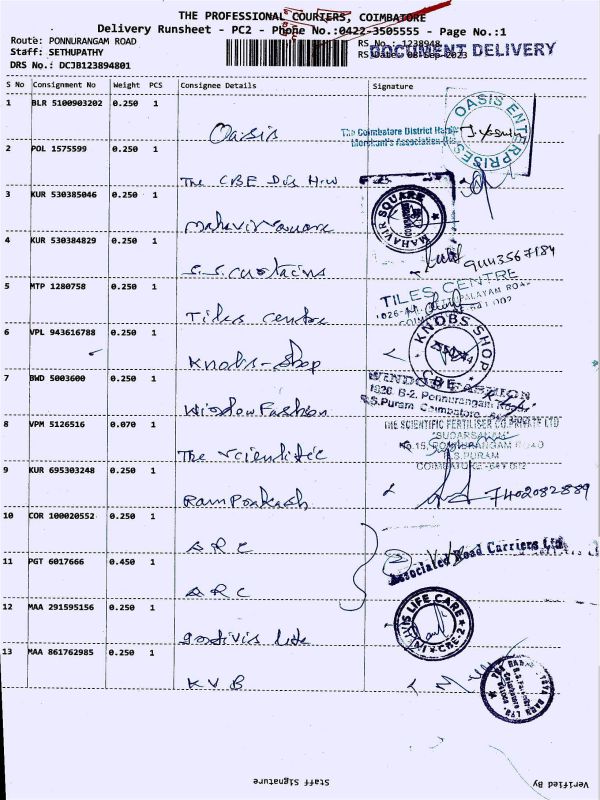 THE PROFESSIONAL COURIERS, COIMBATORE
Delivery Runsheet - PC2 - Phone No.:0422-3505555 - Page No.:1
Route: PONNURANGAM ROAD
RS No.: 1238948
DOCUMENT DELIVERY
Staff: SETHUPATHY
RS Date: 08-Sep-2023
DRS No.: DCJB123894801
S No Consignment No Weight PCS Consignee Details Signature
1 BLR 5100903202 0.250 1 Oasis
OASIS ENTERPRISES
The Coimbatore District
Merchant's Association
2 POL 1575599 0.250 1 The CBE Dis H/W
3 KUR 530385046 0.250 1 Mahavir Square
MAHAVIR SQUARE
4 KUR 530384829 0.250 1 S.S. Curtains
9443567184
5 MTP 1280758 0.250 1 Tiles Centre
TILES CENTRE
6 VPL 943616788 0.250 1 Knobs-Shop
KNOBS SHOP
CBE
7 BWD 5003600 0.250 1 Window Fashion
WINDOW FASHION
1926, B-2, Ponnurangam Road
R.S.Puram, Coimbatore
8 VPM 5126516 0.070 1 The Scientific
THE SCIENTIFIC FERTILISER CO. PRIVATE LTD
"SUDARSANAM"
15, PONNURANGAM ROAD
R.S.PURAM
COIMBATORE
9 KUR 695303248 0.250 1 Ram Prakash
7402082889
10 COR 100020552 0.250 1 ARC
Associated Road Carriers Ltd.
11 PGT 6017666 0.450 1 ARC
12 MAA 291595156 0.250 1 Indivis life
LIFE CARE
CBE-2
13 MAA 861762985 0.250 1 KVB
Staff Signature
Verified By